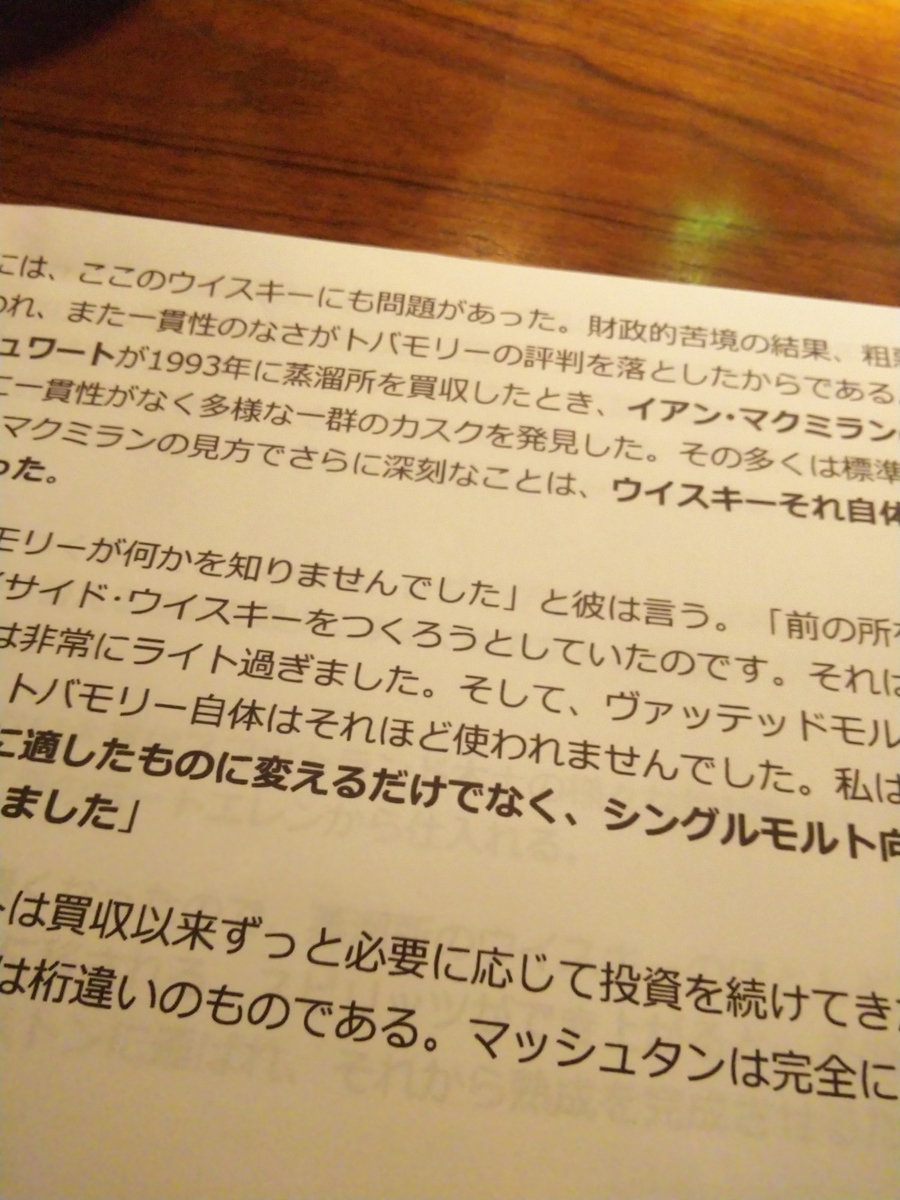 には、ここのウイスキーにも問題があった。財政的苦境の結果、粗
われ、また一貫性のなさがトバモリーの評判を落としたからである
ュワートが1993年に蒸溜所を買収したとき、イアン・マクミラン
に一貫性がなく多様な一群のカスクを発見した。その多くは標準
マクミランの見方でさらに深刻なことは、ウイスキーそれ自体
った。
モリーが何かを知りませんでした」と彼は言う。「前の所
イサイド・ウイスキーをつくろうとしていたのです。それは
は非常にライト過ぎました。そして、ヴァッテッドモル
トバモリー自体はそれほど使われませんでした。私は
に適したものに変えるだけでなく、シングルモルト向
ました」
トは買収以来ずっと必要に応じて投資を続けてき
は桁違いのものである。マッシュタンは完全に